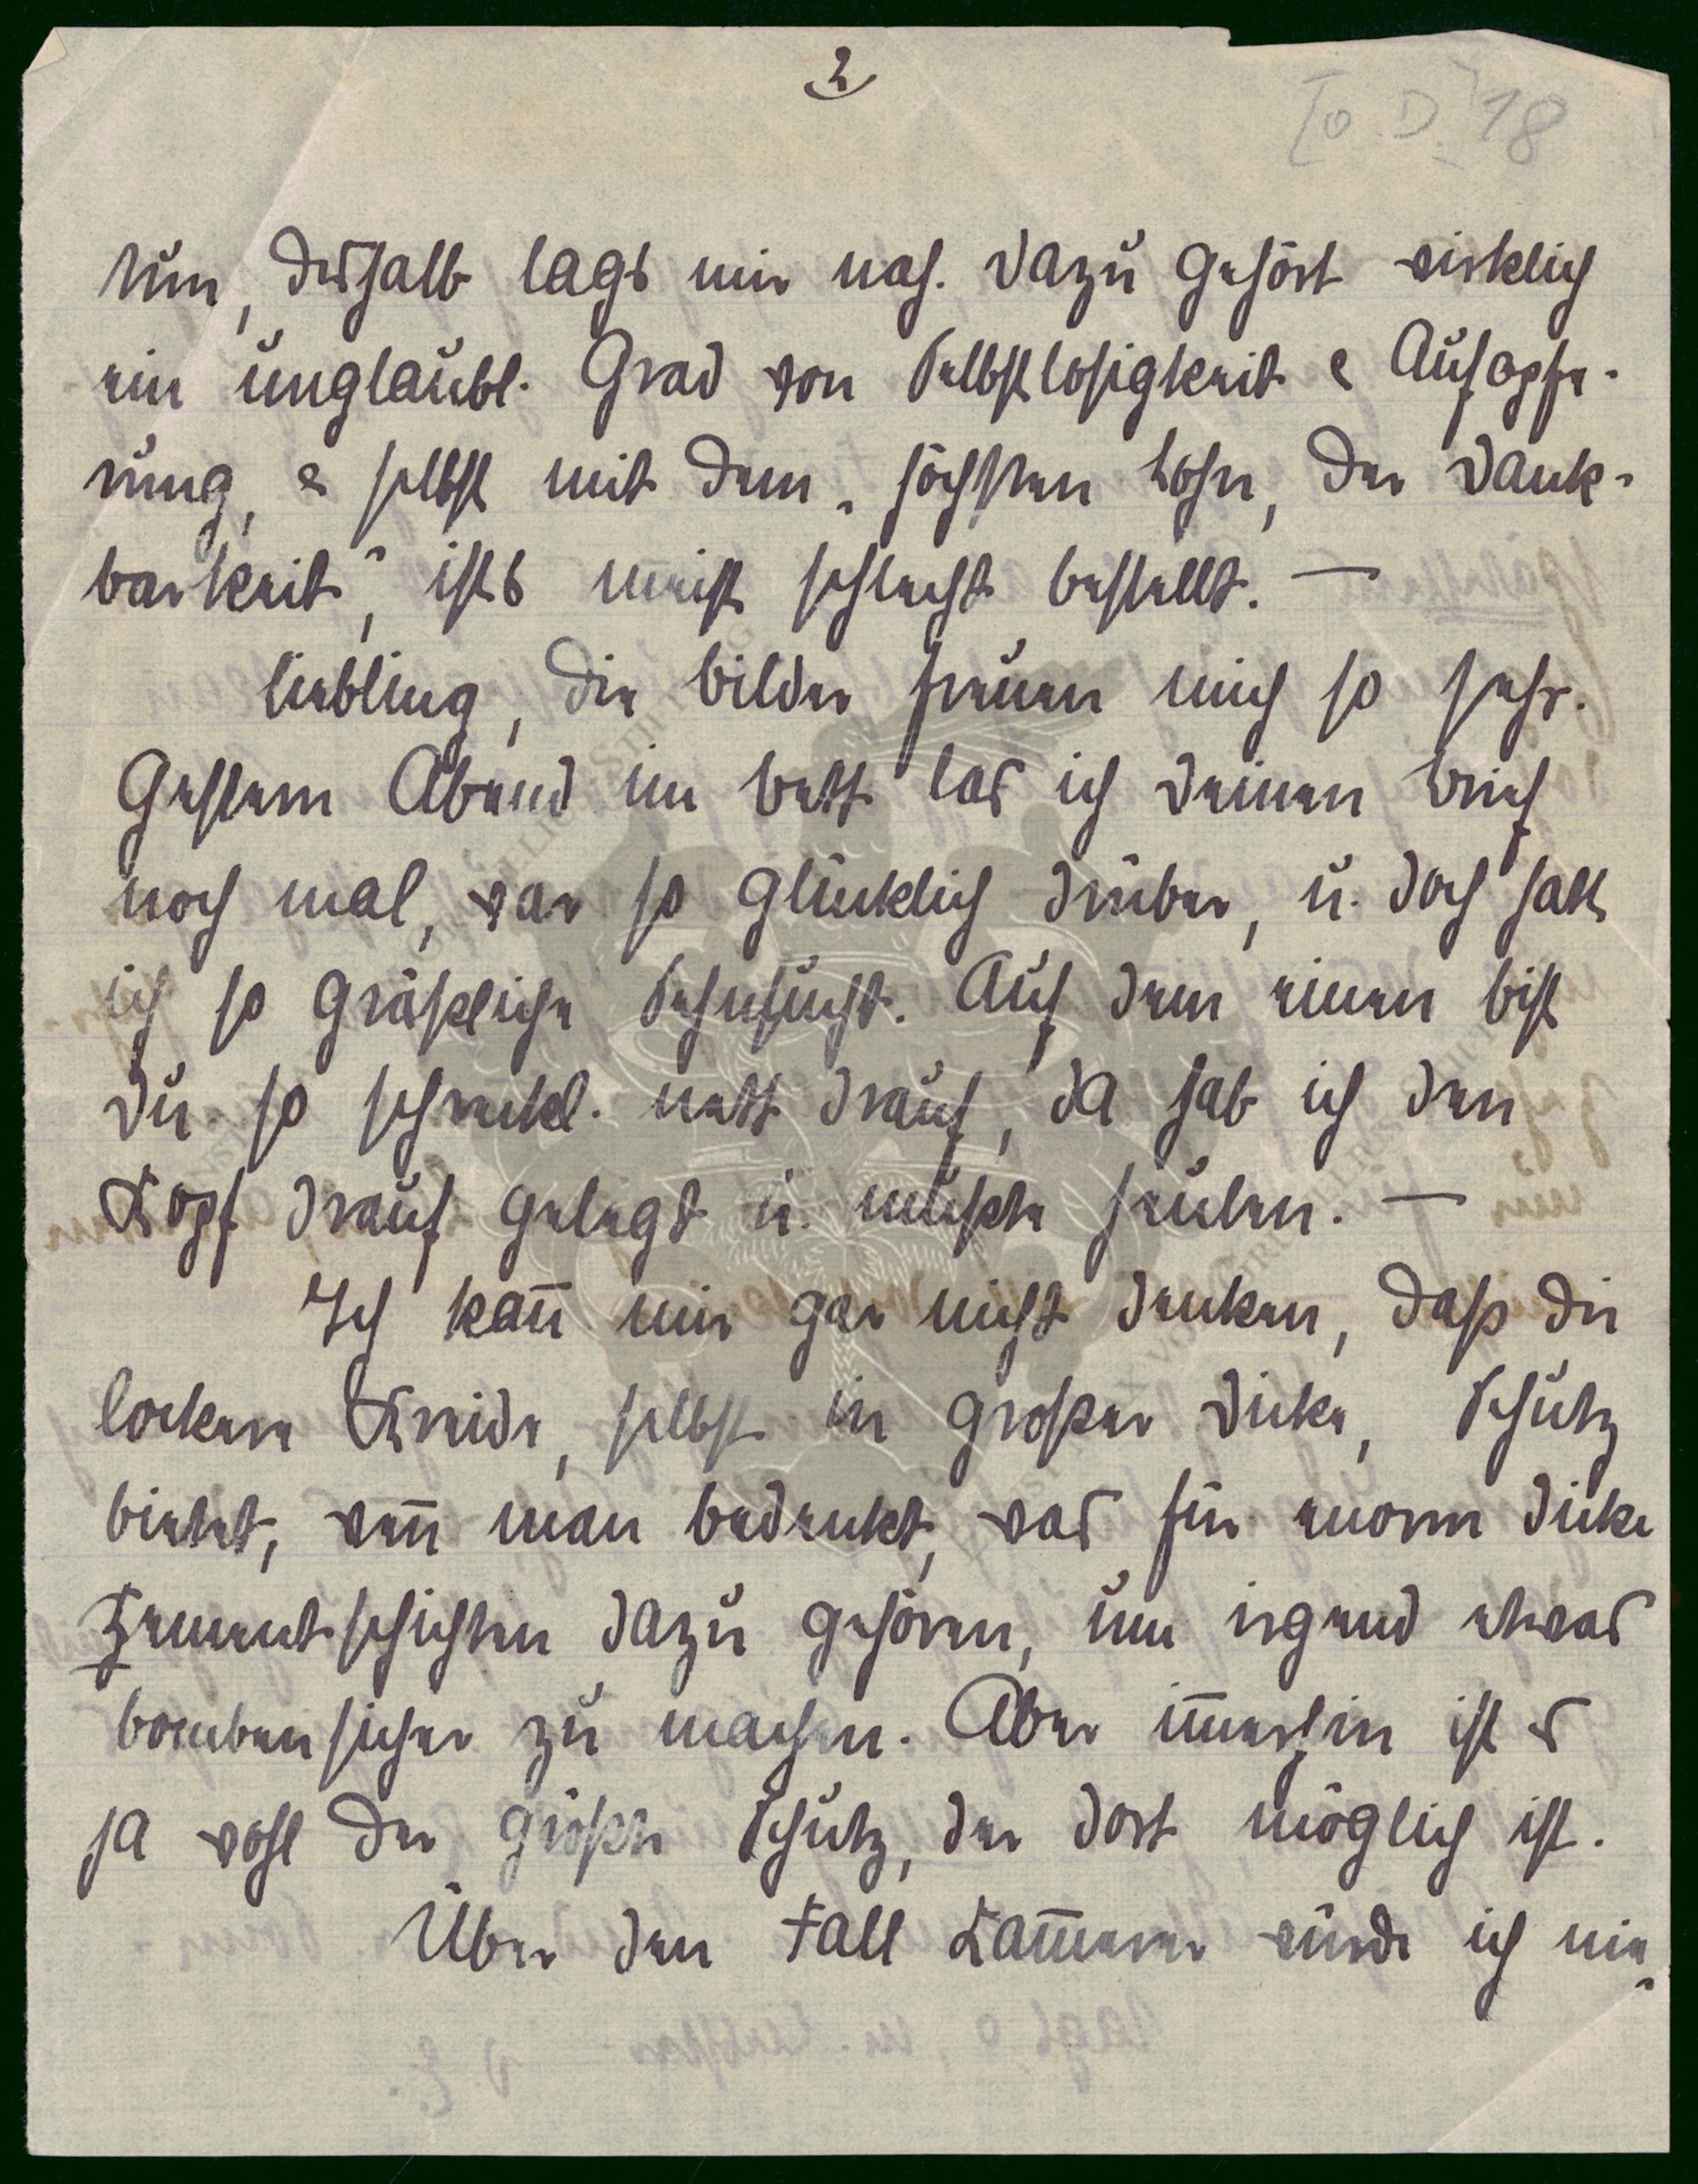 2
[o. D. 18
tun, deshalb lags mir nah. Dazu gehört wirklich
ein unglaubl. Grad von Selbstlosigkeit & Aufopfe-
rung, & selbst mit dem „höchsten Lohn, der Dank-
barkeit“, ists meist schlecht bestellt. —
Liebling, die Bilder freuen mich so sehr.
Gestern Abend im Bett las ich Deinen Brief
noch mal, war so glücklich drüber, u. doch hatt
ich so gräßliche Sehnsucht. Auf dem einen bist
Du so schreckl. nett drauf, da hab ich den
Kopf drauf gelegt u. mußte heulen. —
Ich kan̄ mir gar nicht denken, daß die
lockere Kreide, selbst in großer Dicke, Schutz
bietet, wen̄ man bedenkt, was für enorm dicke
Zementschichten dazu gehören, um irgend etwas
bombensicher zu machen. Aber im̄erhin ist es
ja wohl der größte Schutz, der dort möglich ist.
Über den Fall Kam̄erer würde ich mir